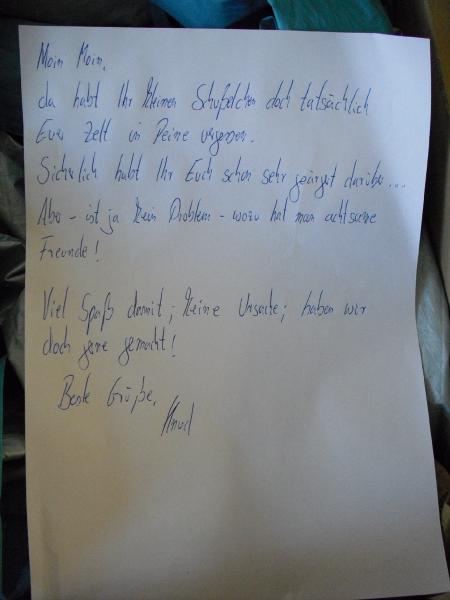 Moin Moin,
da habt Ihr kleinen Schußelchen doch tatsächlich
Euer Zelt in Peine vergessen.
Sicherlich habt Ihr Euch schon sehr geärgert darüber...
Aber - ist ja kein Problem - wozu hat man achtsame
Freunde!
Viel Spaß damit; keine Ursache; haben wir
doch gerne gemacht!
Beste Grüße,
Knud